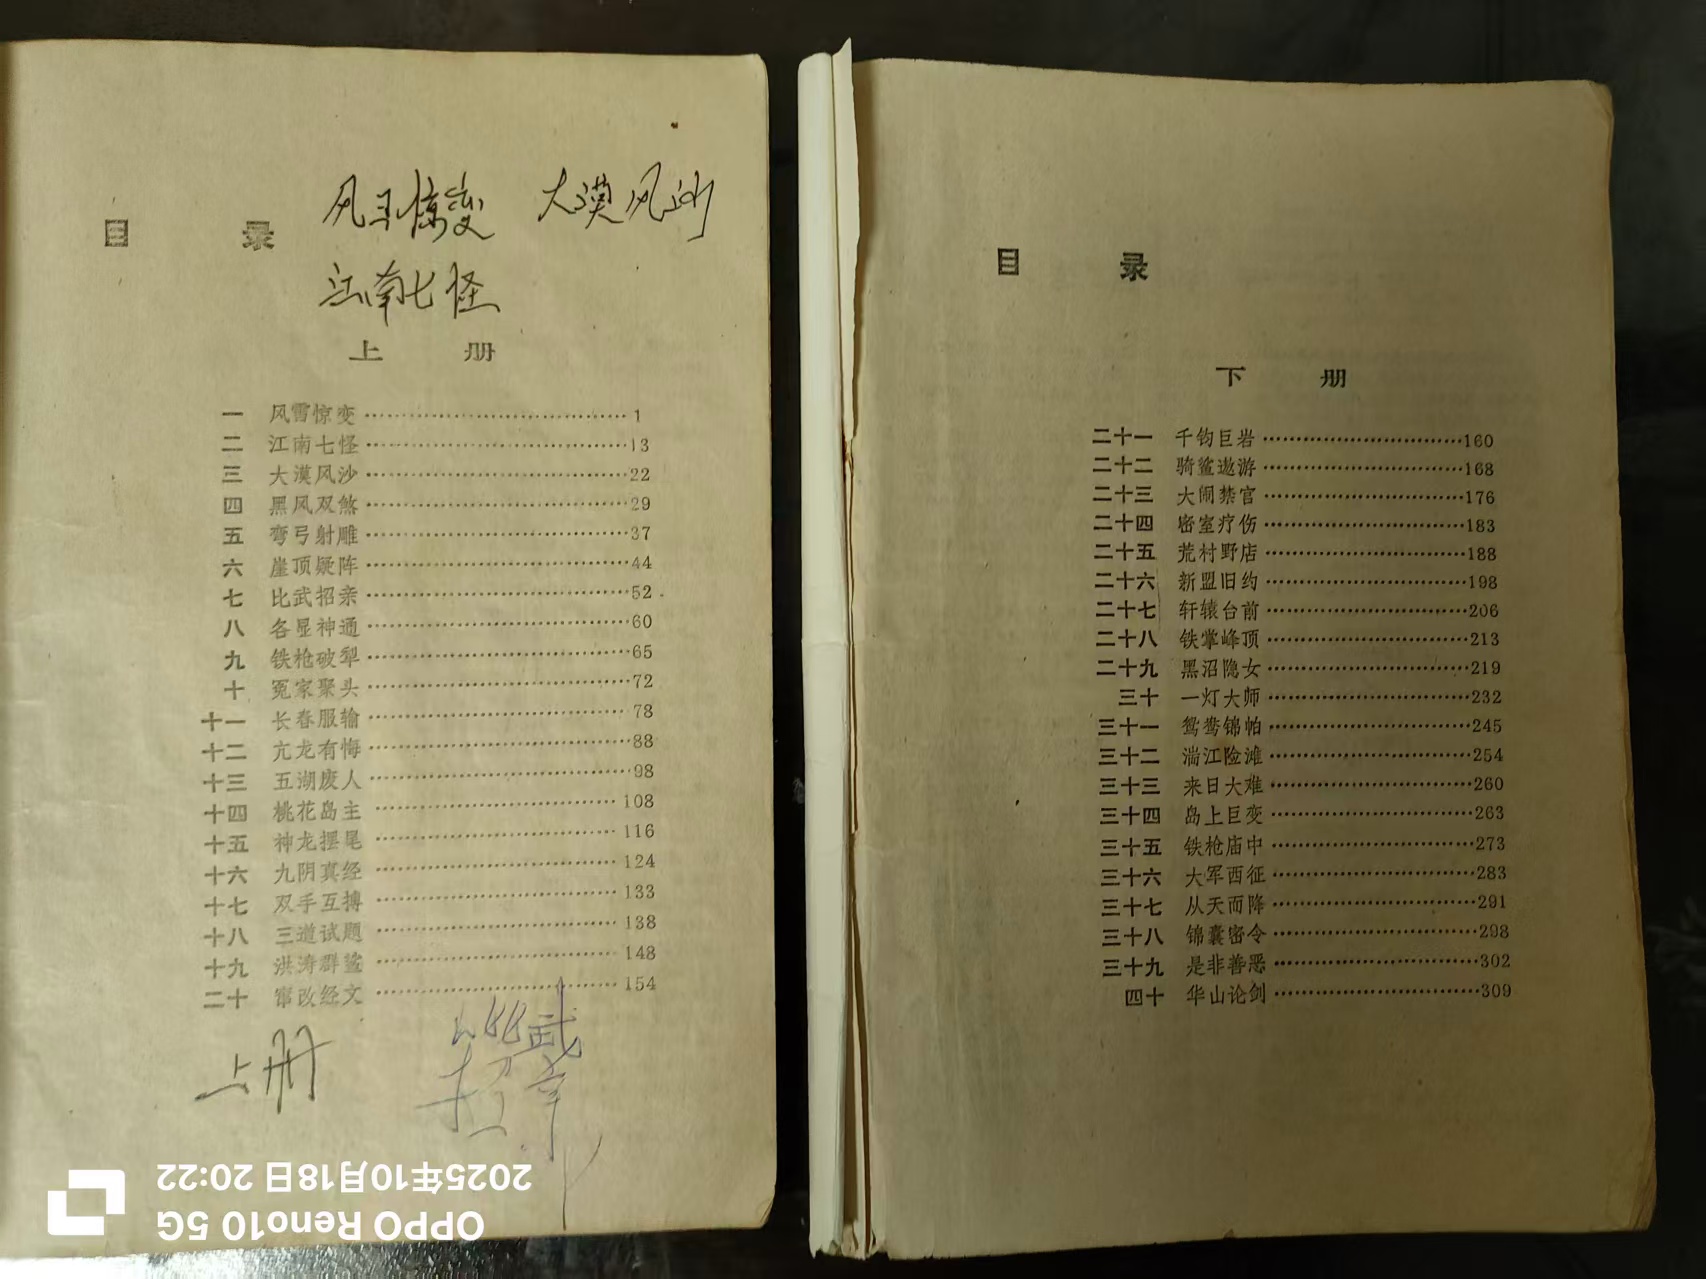 目 录
风雪惊变 大漠风沙
江南七怪
上 册
一 风雪惊变……1
二 江南七怪……13
三 大漠风沙……22
四 黑风双煞……29
五 弯弓射雕……37
六 崖顶疑阵……44
七 比武招亲……52
八 各显神通……60
九 铁枪破犁……65
十 冤家聚头……72
十一 长春服输……78
十二 亢龙有悔……88
十三 五湖废人……98
十四 桃花岛主……108
十五 神龙摆尾……116
十六 九阴真经……124
十七 双手互搏……133
十八 三道试题……138
十九 洪涛群鲨……148
二十 窜改经文……154
上册
比武
招亲
2025年10月18日 20:22
OPPO Reno10 5G
目 录
下 册
二十一 千钧巨岩……160
二十二 骑鲨遨游……168
二十三 大闹禁宫……176
二十四 密室疗伤……183
二十五 荒村野店……188
二十六 新盟旧约……198
二十七 轩辕台前……206
二十八 铁掌峰顶……213
二十九 黑沼隐女……219
三十 一灯大师……232
三十一 鸳鸯锦帕……245
三十二 湍江险滩……254
三十三 来日大难……260
三十四 岛上巨变……263
三十五 铁枪庙中……273
三十六 大军西征……283
三十七 从天而降……291
三十八 锦囊密令……298
三十九 是非善恶……302
四十 华山论剑……309